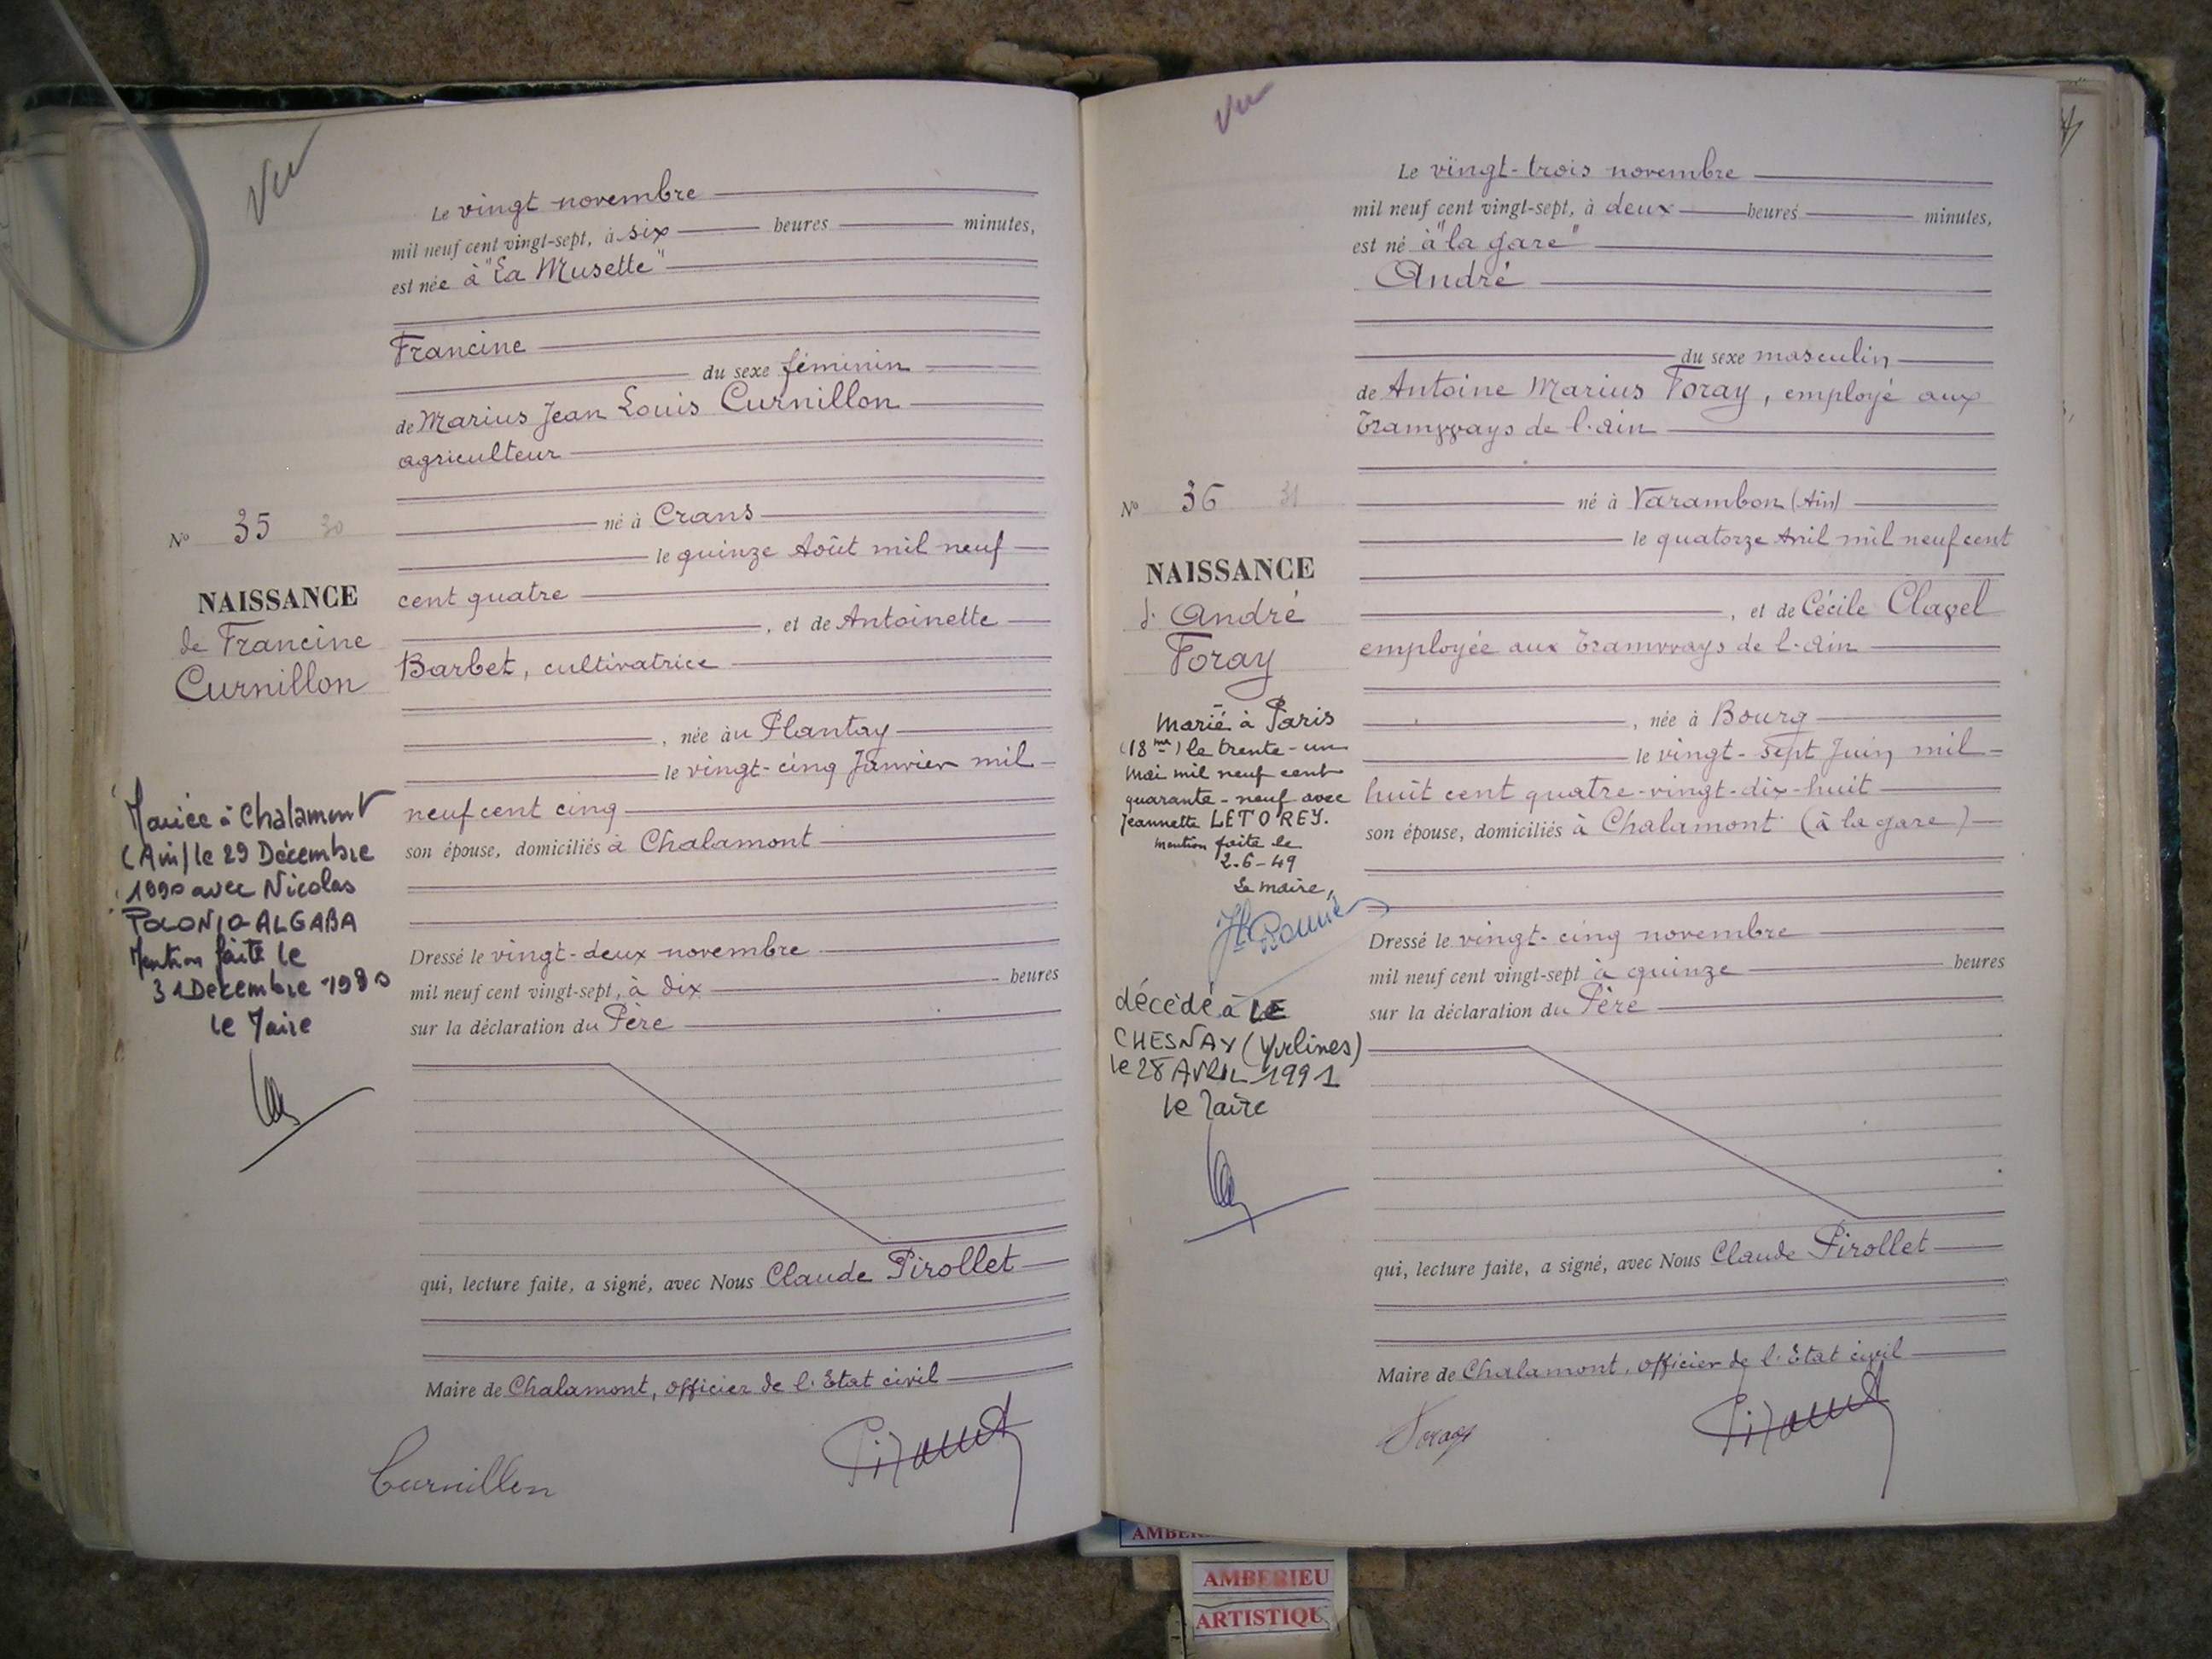 Vu
Le vingt novembre
mil neuf cent vingt-sept, à six heures minutes,
est née à "La Musette"
Francine
du sexe féminin
de Marius Jean Louis Curnillon
agriculteur
né à Crans
le quinze Août mil neuf
cent quatre
, et de Antoinette
Barbet, cultivatrice
, née au Plantay
le vingt-cinq Janvier mil
neuf cent cinq
son épouse, domiciliés à Chalamont
Dressé le vingt-deux novembre
mil neuf cent vingt-sept, à dix heures
sur la déclaration du Père
qui, lecture faite, a signé, avec Nous Claude Pirollet
Maire de Chalamont, officier de l'Etat civil
Curnillon
N° 35 30
NAISSANCE
de Francine
Curnillon
Mariée à Chalamont
(Ain) le 29 Décembre
avec Nicolas
POLONIO-ALGABA
Mention faite le
31 Decembre
le Maire
Vu
Le vingt-trois novembre
mil neuf cent vingt-sept, à deux heures minutes,
est né à "la gare"
André
du sexe masculin
de Antoine Marius Foray, employé aux
Tramways de l'ain
né à Varambon (Ain)
le quatorze Avril mil neuf cent
, et de Cécile Clavel
employée aux Tramways de l'ain
, née à Bourg
le vingt-sept Juin mil
huit cent quatre-vingt-dix-huit
son épouse, domiciliés à Chalamont (à la gare)
Dressé le vingt-cinq novembre
mil neuf cent vingt-sept à quinze heures
sur la déclaration du Père
qui, lecture faite, a signé, avec Nous Claude Pirollet
Maire de Chalamont, officier de l'Etat civil
Foray
N° 36 31
NAISSANCE
d' André
Foray
Marié à Paris
(18me) le trente-un
Mai mil neuf cent
quarante-neuf avec
Jeannette LETOREY.
Mention faite le
2-6-49
Le maire,
décédé à LE
CHESNAY (Yvelines)
le 28 AVRIL 1991
le Maire
AMBERIEU
ARTISTIQU